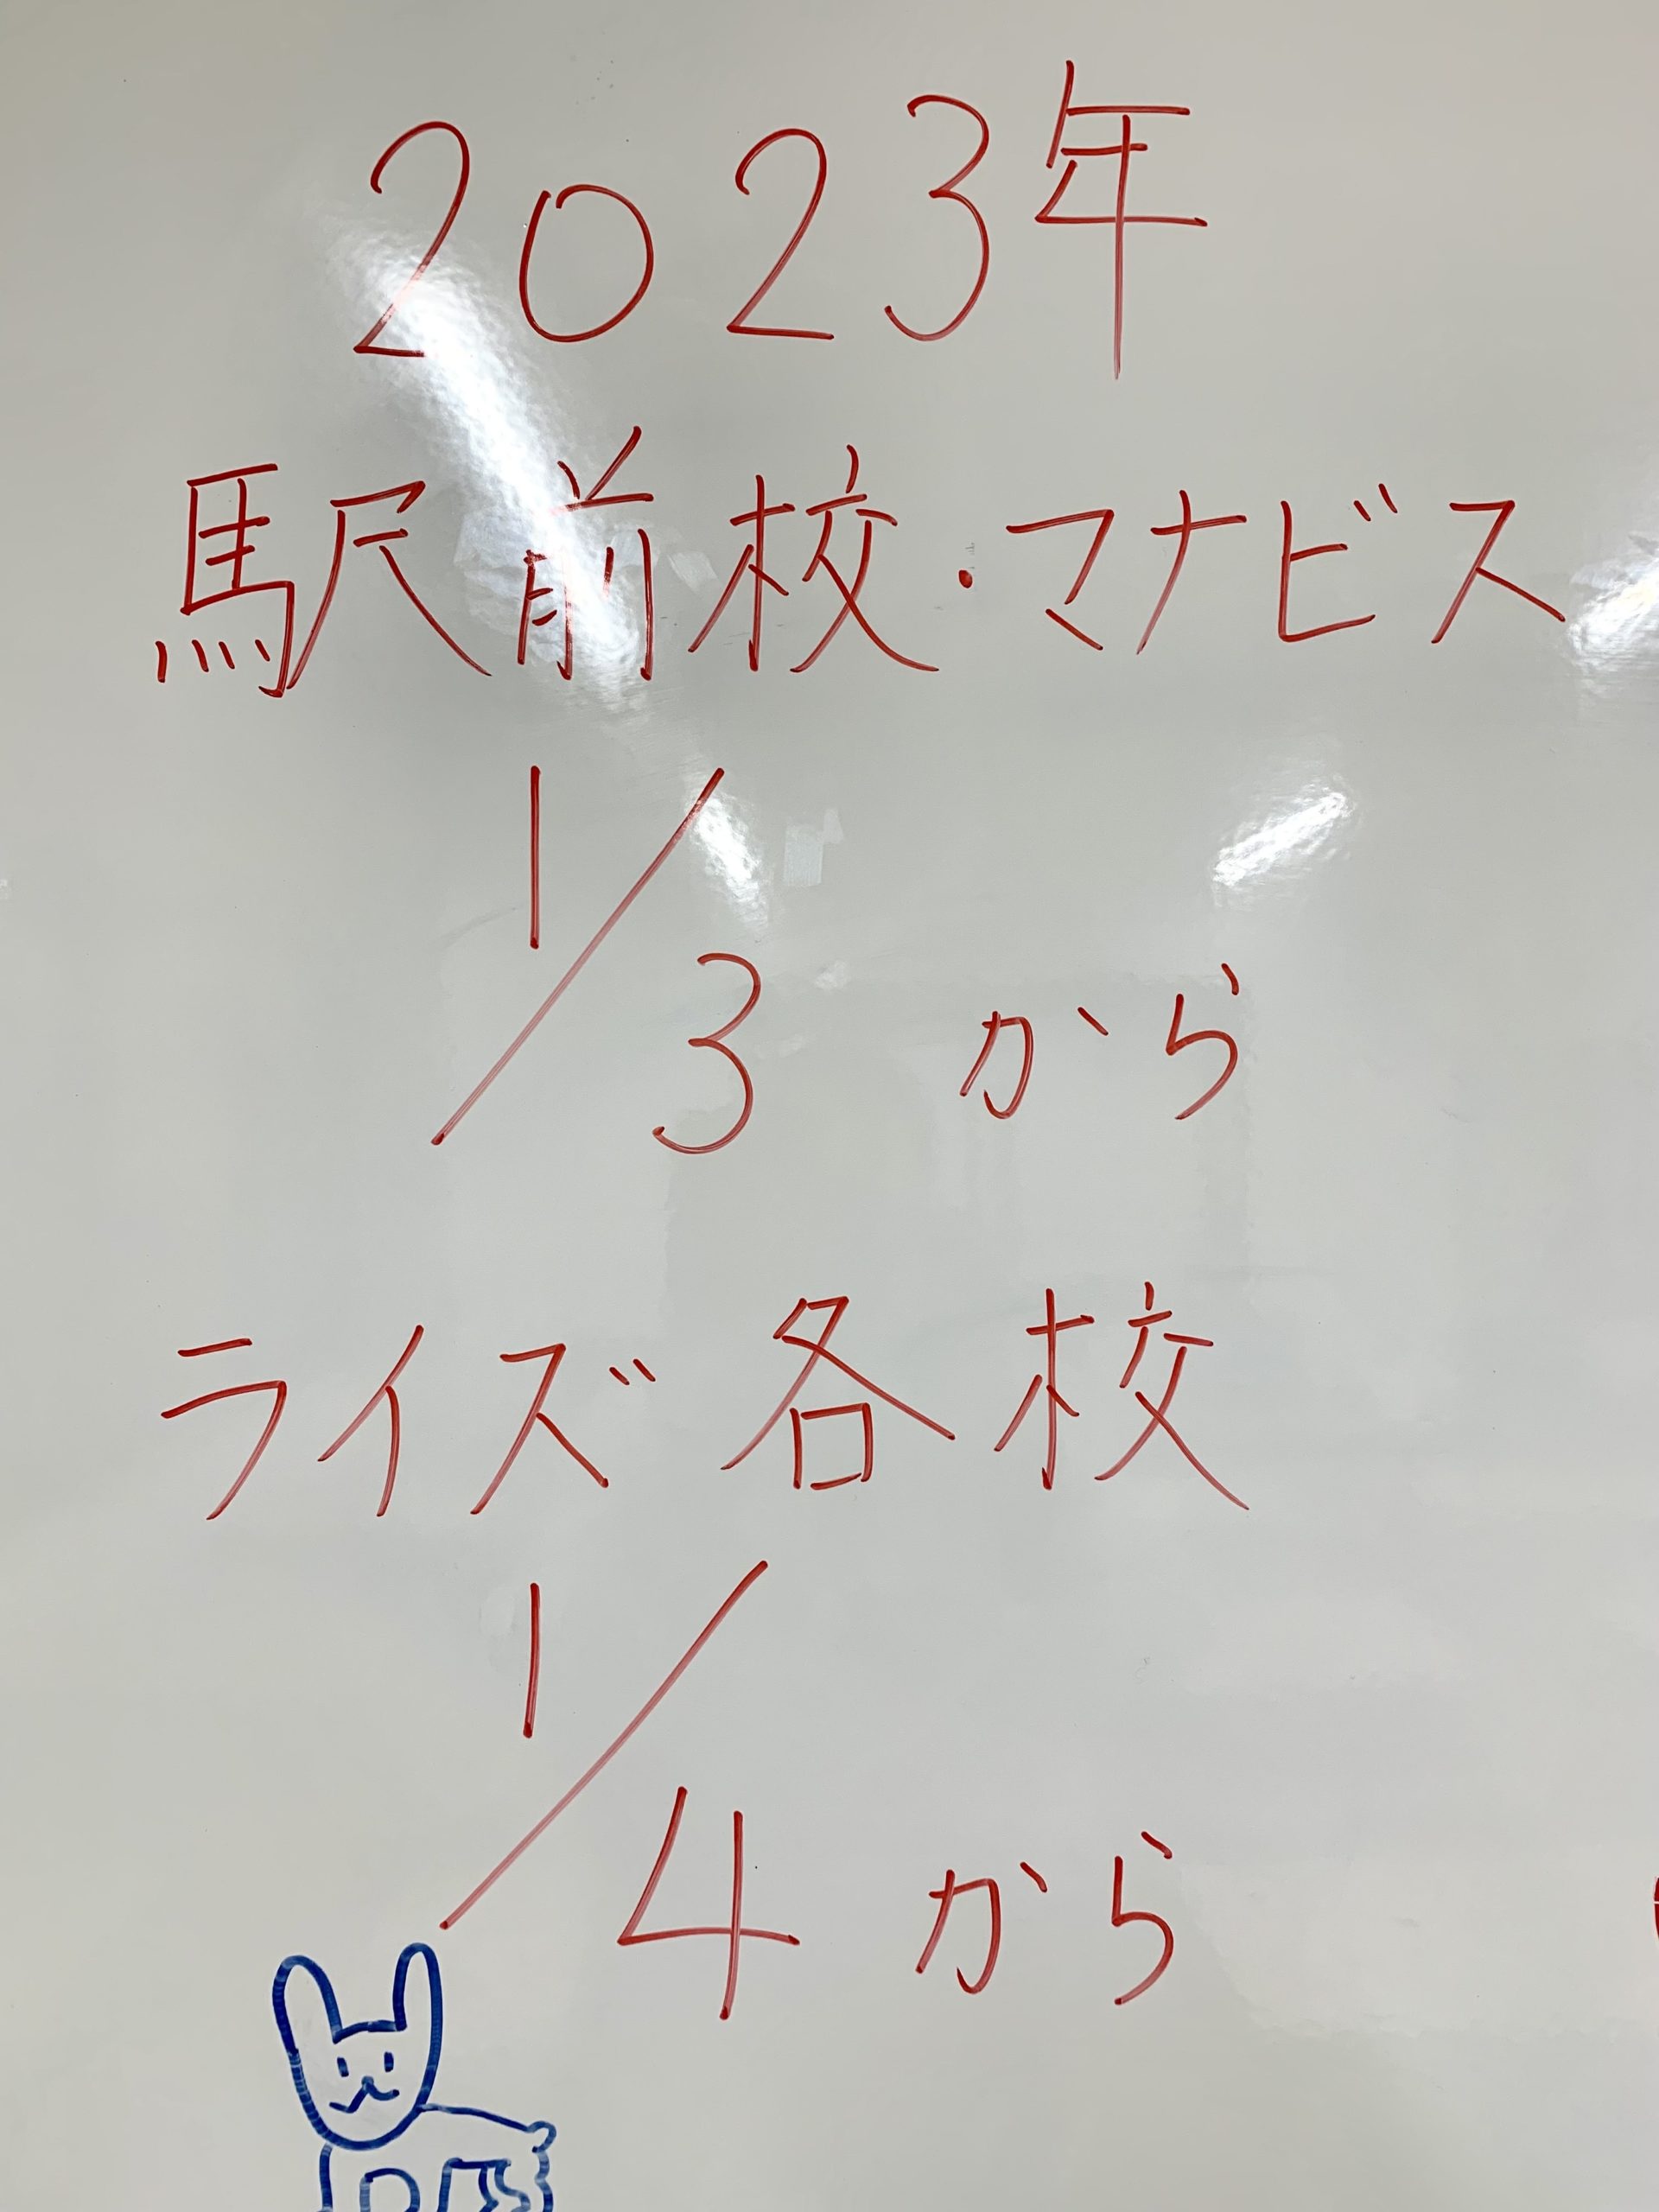 2023年
駅前校・マナビス
1/3 から
ライズ 各校
1/4 から